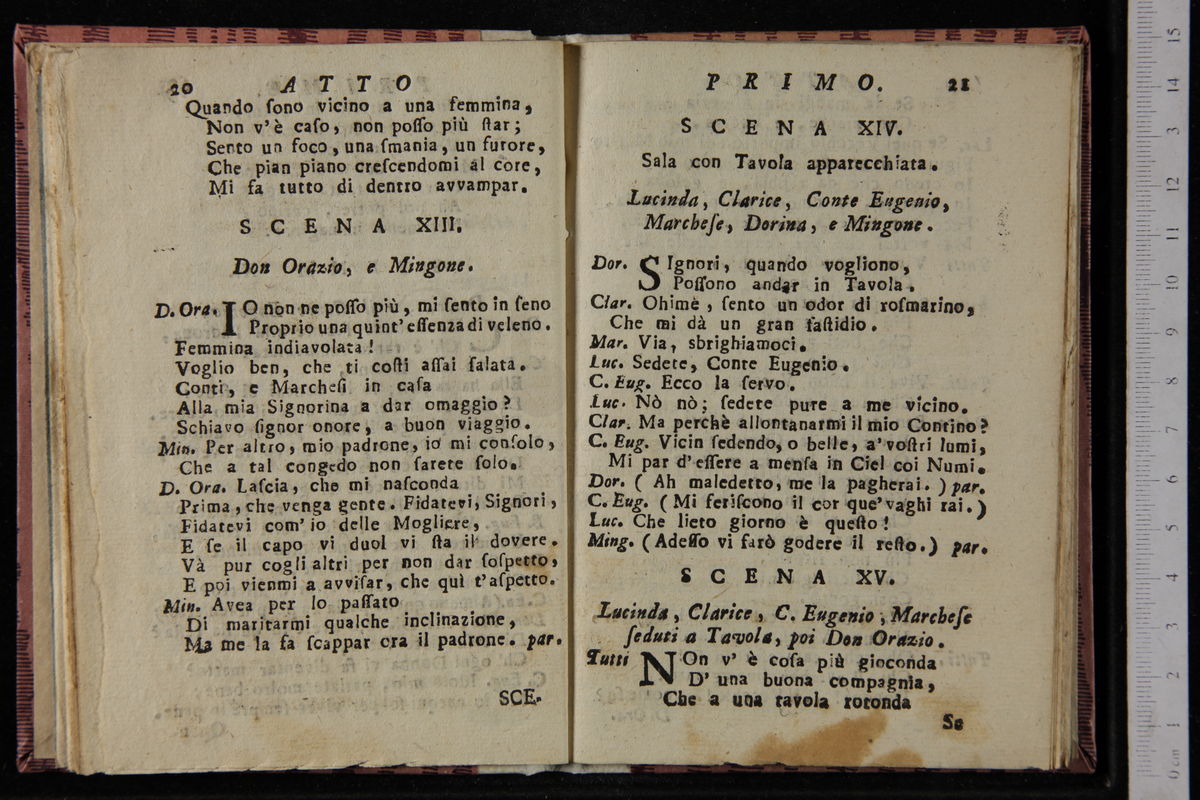 20 ATTO
Quando ſono vicino a una femmina,
Non v'è caſo, non poſſo più ſtar;
Sento un foco, una ſmania, un furore,
Che pian piano creſcendomi al core,
Mi fa tutto di dentro avvampar.
SCENA XIII.
Don Orazio, e Mingone.
D. Ora. IO non ne poſſo più, mi ſento in ſeno
Proprio una quint'eſſenza di veleno.
Femmina indiavolata!
Voglio ben, che ti coſti aſſai ſalata.
Conti, e Marcheſi in caſa
Alla mia Signorina a dar omaggio?
Schiavo ſignor onore, a buon viaggio.
Min. Per altro, mio padrone, io mi conſolo,
Che a tal congedo non ſarete ſolo.
D. Ora. Laſcia, che mi naſconda
Prima, che venga gente. Fidatevi, Signori,
Fidatevi com'io delle Mogliere,
E ſe il capo vi duol vi ſta il dovere.
Và pur cogli altri per non dar ſoſpetto,
E poi vienmi a avviſar, che quì t'aſpetto.
Min. Avea per lo paſſato
Di maritarmi qualche inclinazione,
Ma me la fa ſcappar ora il padrone. par.
SCE-
PRIMO. 21
SCENA XIV.
Sala con Tavola apparecchiata.
Lucinda, Clarice, Conte Eugenio,
Marcheſe, Dorina, e Mingone.
Dor. SIgnori, quando vogliono,
Poſſono andar in Tavola.
Clar. Ohimè, ſento un odor di roſmarino,
Che mi dà un gran faſtidio.
Mar. Via, sbrighiamoci.
Luc. Sedete, Conte Eugenio.
C. Eug. Ecco la ſervo.
Luc. Nò nò; ſedete pure a me vicino.
Clar. Ma perchè allontanarmi il mio Contino?
C. Eug. Vicin ſedendo, o belle, a'voſtri lumi,
Mi par d'eſſere a menſa in Ciel coi Numi.
Dor. (Ah maledetto, me la pagherai.) par.
C. Eug. (Mi feriſcono il cor que'vaghi rai.)
Luc. Che lieto giorno è queſto!
Ming. (Adeſſo vi farò godere il reſto.) par.
SCENA XV.
Lucinda, Clarice, C. Eugenio, Marcheſe
ſeduti a Tavola, poi Don Orazio.
Tutti NOn v'è coſa più gioconda
D'una buona compagnia,
Che a una tavola rotonda
Se
15
14
3
12
11
10
9
8
7
6
5
4
3
2
1
0 cm